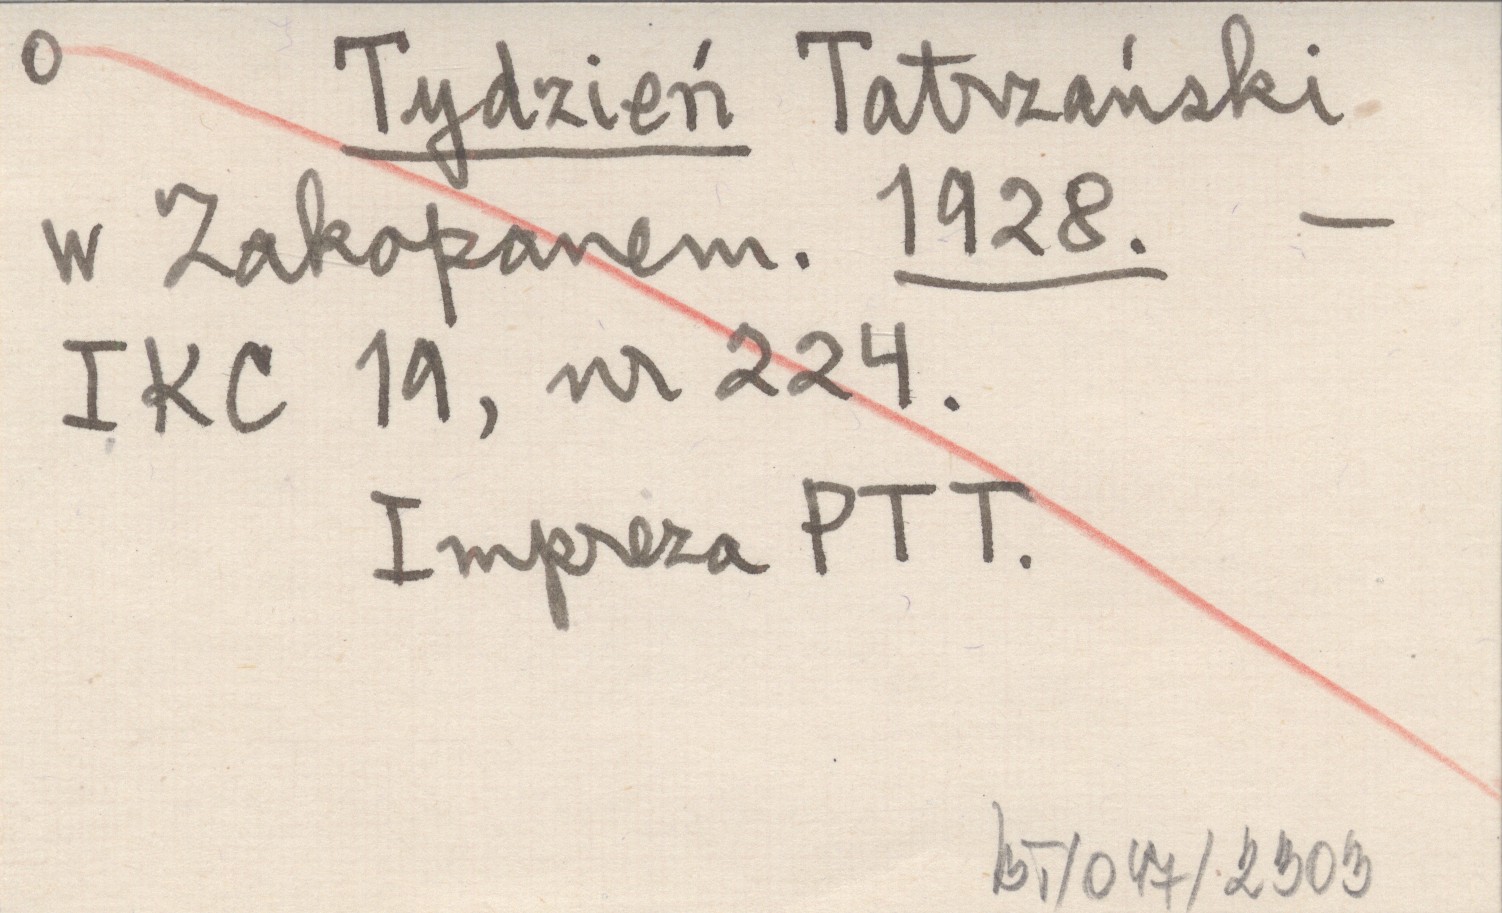 o Tydzień Tatrzański
w Zakopanem. 1928. —
IKC 19, nr 224.
Impreza PTT.
BT/047/2303